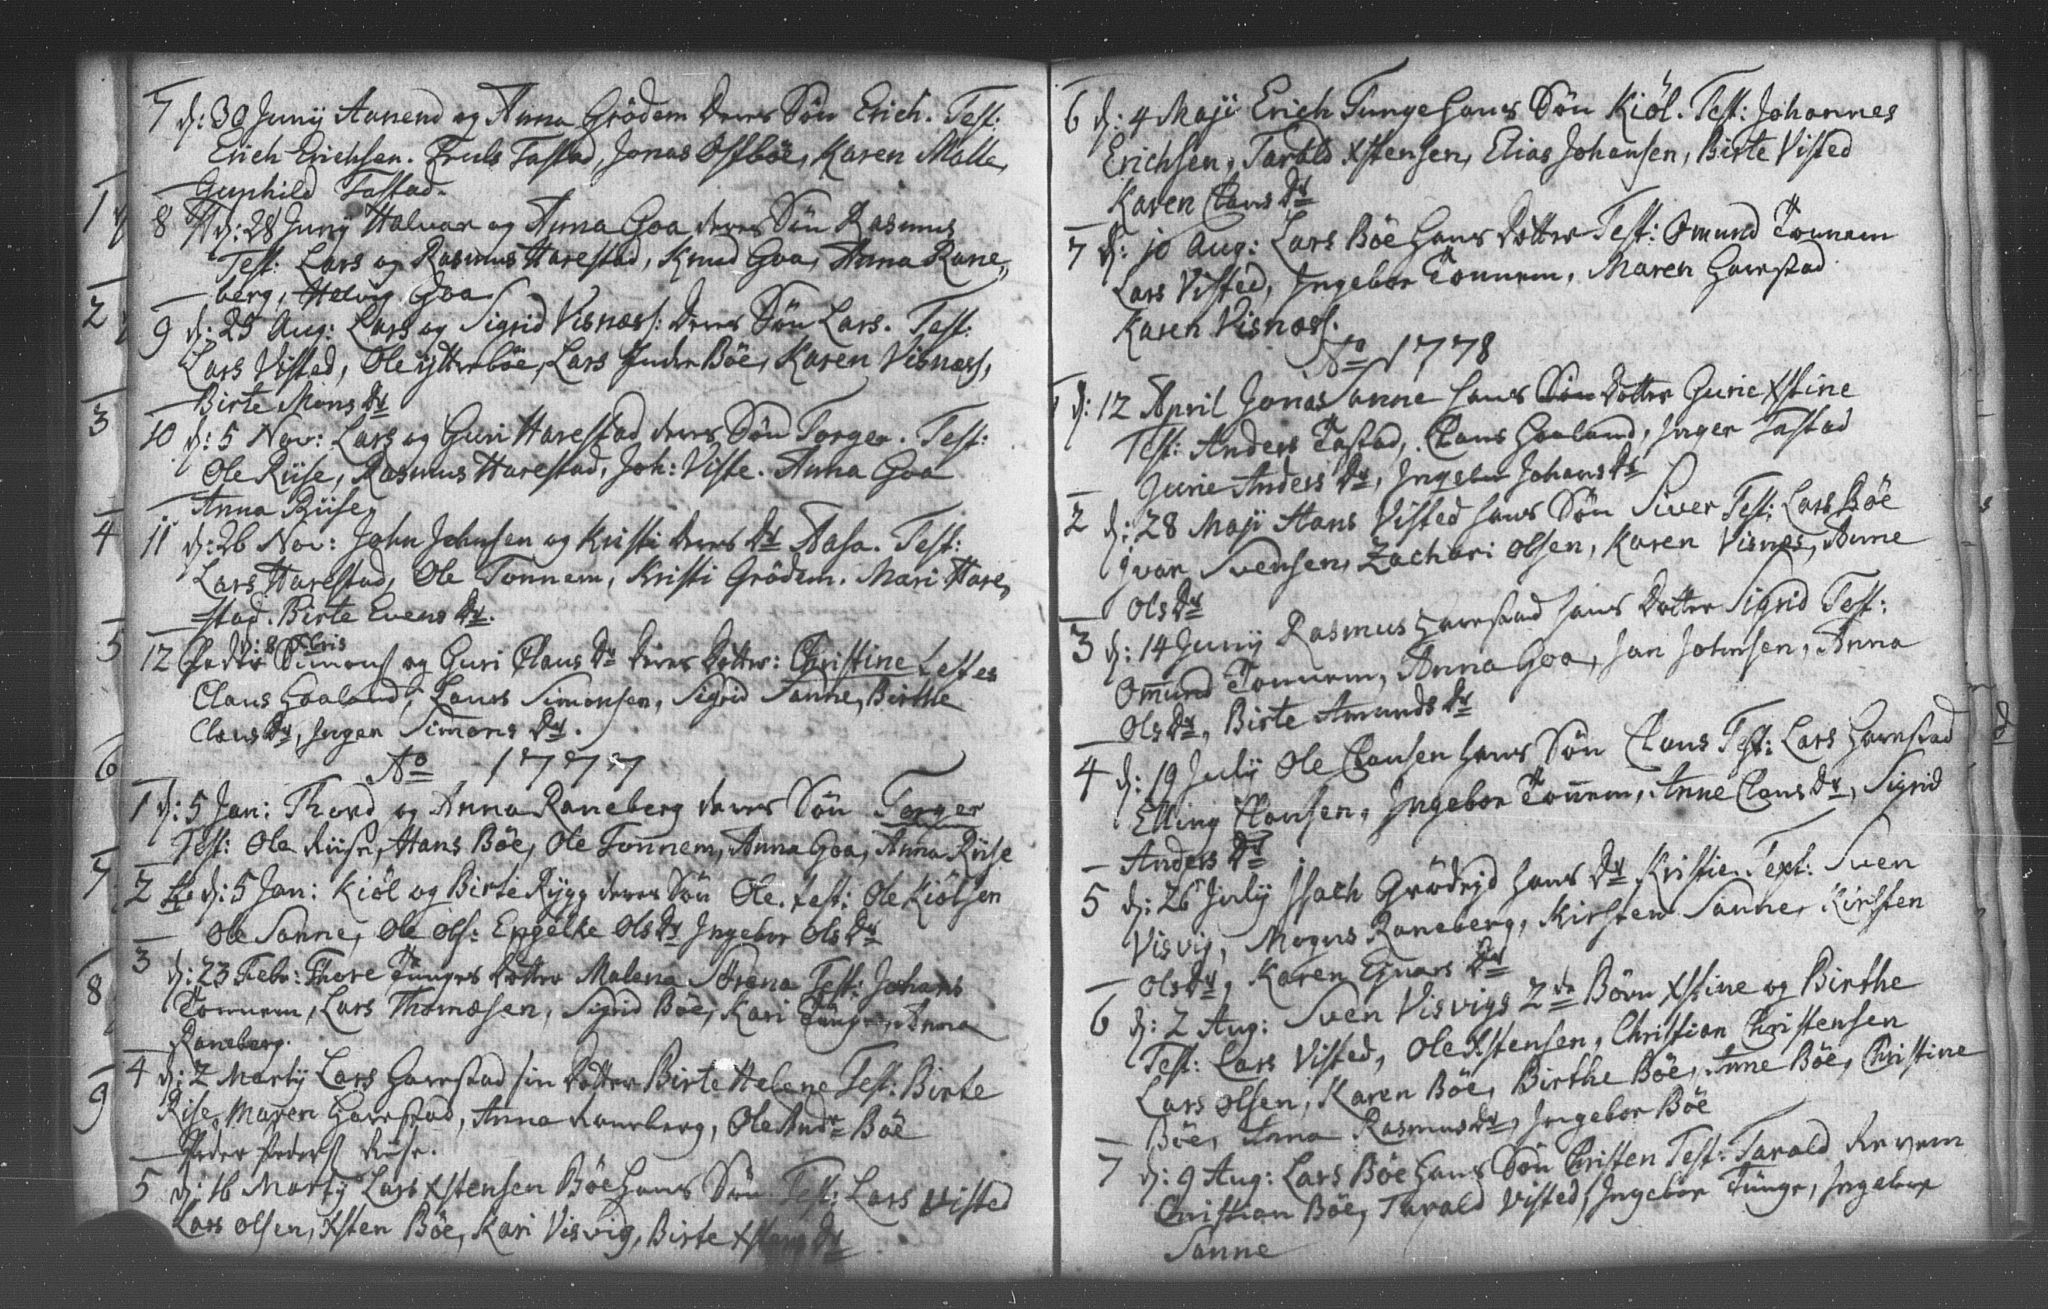 7 d: 30 Junij Aanend og Anna Grödem deres Sön Erich. Test:
Erich Erichsen. Truls Tastad, Jonas Ostböe, Karen Malle,
Gunhild Tastad.
8 d: 28 Junij Halvar og Anna Goa deres Sön Rasmus
Test: Lars og Rasmus Harestad, Knud Goa, Anna Rane=
berg, Helvig Goa
9 d: 25 Aug: Lars og Sigrid Visnæs: deres Sön Lars. Test:
Lars Visted, Ole ytterböe, Lars Inder Böe, Karen Visnæss,
Birte Mons Dr
10 d: 5 Nov: Lars og Guri Harestad deres Sön Torger. Test:
Ole Riise, Rasmus Harestad, Joh: Viste. Anna Goa
Anna Riise,
11 d: 26 Nov: John Johnsen og Kristi deres Dr Aasa. Test:
Lars Harestad, Ole Tonnem, Kristi Grödem. Mari Hare,
=stad. Birte Evens Dr.
d: 8 Xbris
12 Peder Simons og Guri Claus Dr deres Dotter: Christine Testes
Claus Haaland, Laurs Simonsen, Sigrid Sanne, Birthe
Claus Dr, Inger Simons Dr.
Ao 1777
1 d: 5 Jan: Thord og Anna Raneberg deres Sön Torger
Test: Ole Riise, Hans Böe, Ole Tonnem, Anna Goa, Anna Riise
2 d: 5 Jan: Kiöl og Birte Rygg deres Sön Ole. test: Ole Kiölsen
Ole Sanne, Ole Ols: Engelke Ols Dr Ingebor Ols Dr
3 d: 23 Febr: Thore Tunges Dotter Malena Serena Test: Johans
Tonnem, Lars Thomæsen, Sigrid Böe, Kari Tunge, Anna
Raneberg.
4 d: 2 Martij Lars Harestad sin Dotter Birte Helene Test: Birte
Rise, Maren Harestad, Anna Raneberg, Ole Andr Böe
Peder Peders Riise.
5 d: 16 Martij Lars Xstensen Böe Hans Sön. Test: Lars Visted
Lars Olsen, Xsten Böe, Kari Visvig, Birte Dr
6 d: 4 Maji Erich Tunge hans Sön Kiöl. Test: Johannes
Erichsen, Tarald Xstensen, Elias Johansen, Birte Visted
Karen Claus Dr
7 d: 10 Aug: Lars Böe hans Dotter Test: Omund Tonnem
Lars Visted, Ingebor Tonnem, Maren Harestad
Karen Visnæss.
Ao 1778
1 d: 12 April Jonas Sanne hans Sön Dotter Gurie Xstine
Test: Anders Tastad, Claus Haaland, Inger Tastad
Gurie Anders Dr, Ingebor Johans Dr
2 d: 28 Maji Hans Visted hans Sön Siver Test: Lars Böe
Ivar Svensen, Zachari Olsen, Karen Visnes, Anne
Ols Dr
3 d: 14 Junij Rasmus Harestad hans Dotter Sigrid Test:
Omund Tonnem, Anna Goa, Jan Johnsen, Anna
Ols Dr, Birte Amunds Dr
4 d: 19 Julij Ole Clausen hans Sön Claus Test: Lars Harestad
Elling Hansen, Ingebor Tonnem, Anne Claus Dr, Sigrid
Anders Dr
5 d: 26 Julij Isach Grödejd hans Dr Kristie. Test: Sven
Visvig, Mogns Raneberg, Kirsten Sanne, Kirsten
Ols Dr, Karen Ejnars Dr
6 d: 2 Aug: Sven Visvigs 2de Börn Xstine og Birthe
Test: Lars Visted, Ole Xstensen, Christian Christensen
Lars Olsen, Karen Böe, Birthe Böe, Anne Böe, Christine
Böe, Anna Rasmus Dr, Ingebor Böe
7 d: 9 Aug: Lars Böe hans Sön Christen Test: Tarald Revem
Christian Böe, Tarald Visted, Ingebor Tunge, Ingebor
Sanne
1
2
3
4
5
6
7
8
9